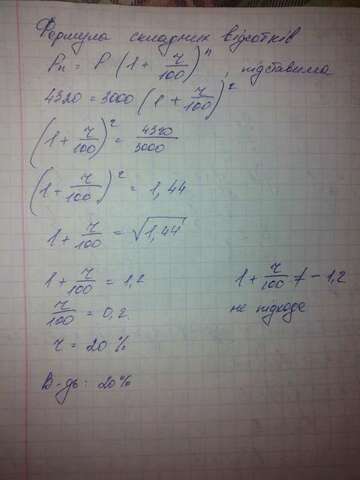 Формула складних відсотків
Pn = P (1 + r/100)^n, підставила
4320 = 3000 (1 + r/100)^2
(1 + r/100)^2 = 4320/3000
(1 + r/100)^2 = 1,44
1 + r/100 = √1,44
1 + r/100 = 1,2 1 + r/100 ≠ -1,2
r/100 = 0,2 не підходе
r = 20 %
В-дь: 20%